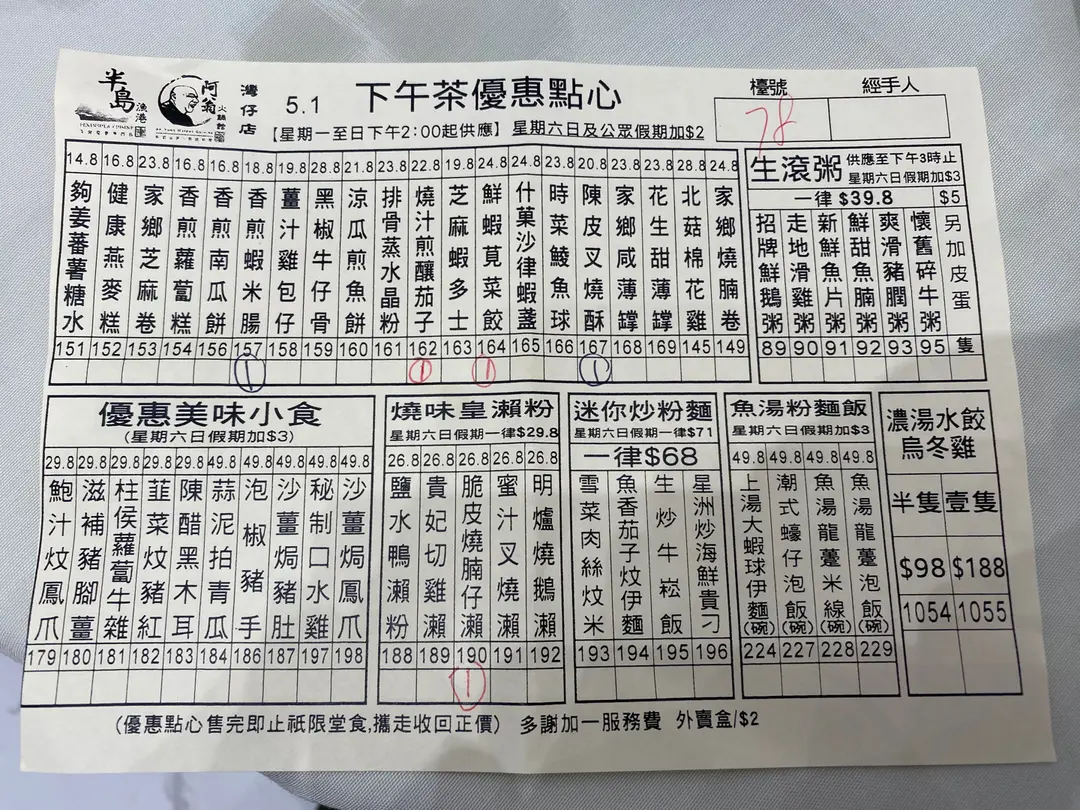 半島
漁港
阿翁
火鍋館
灣仔店
5.1
下午茶優惠點心
【星期一至日下午2:00起供應】 星期六日及公眾假期加$2
檯號
經手人
78
14.8 16.8 23.8 16.8 16.8 18.8 19.8 28.8 21.8 23.8 22.8 19.8 24.8 24.8 23.8 20.8 23.8 23.8 28.8 24.8
夠姜蕃薯糖水
健康燕麥糕
家鄉芝麻卷
香煎蘿蔔糕
香煎南瓜餅
香煎蝦米腸
薑汁雞包仔
黑椒牛仔骨
涼瓜煎魚餅
排骨蒸水晶粉
燒汁煎釀茄子
芝麻蝦多士
鮮蝦莧菜餃
什菓沙律蝦盞
時菜鯪魚球
陳皮叉燒酥
家鄉咸薄罉
花生甜薄罉
北菇棉花雞
家鄉燒腩卷
151 152 153 154 156 157 158 159 160 161 162 163 164 165 166 167 168 169 145 149
1 1 1 1
生滾粥
供應至下午3時止
星期六日假期加$3
一律 $39.8
$5
招牌鮮鵝粥
走地滑雞粥
新鮮魚片粥
鮮甜魚腩粥
爽滑豬膶粥
懷舊碎牛粥
另加皮蛋
89 90 91 92 93 95 隻
優惠美味小食
(星期六日假期加$3)
29.8 29.8 29.8 29.8 29.8 49.8 49.8 49.8 49.8 49.8
鮑汁炆鳳爪
滋補豬腳薑
柱侯蘿蔔牛雜
韮菜炆豬紅
陳醋黑木耳
蒜泥拍青瓜
泡椒豬手
沙薑焗豬肚
秘制口水雞
沙薑焗鳳爪
179 180 181 182 183 184 186 187 197 198
燒味皇瀨粉
星期六日假期一律$29.8
26.8 26.8 26.8 26.8 26.8
鹽水鴨瀨粉
貴妃切雞瀨
脆皮燒腩仔瀨
蜜汁叉燒瀨
明爐燒鵝瀨
188 189 190 191 192
1
迷你炒粉麵
星期六日假期一律$71
一律$68
雪菜肉絲炆米
魚香茄子炆伊麵
生炒牛崧飯
星洲炒海鮮貴刁
193 194 195 196
魚湯粉麵飯
星期六日假期加$3
49.8 49.8 49.8 49.8
上湯大蝦球伊麵(碗)
潮式蠔仔泡飯(碗)
魚湯龍躉米線(碗)
魚湯龍躉泡飯(碗)
224 227 228 229
濃湯水餃
烏冬雞
半隻 壹隻
$98 $188
1054 1055
(優惠點心售完即止祇限堂食,攜走收回正價) 多謝加一服務費 外賣盒/$2